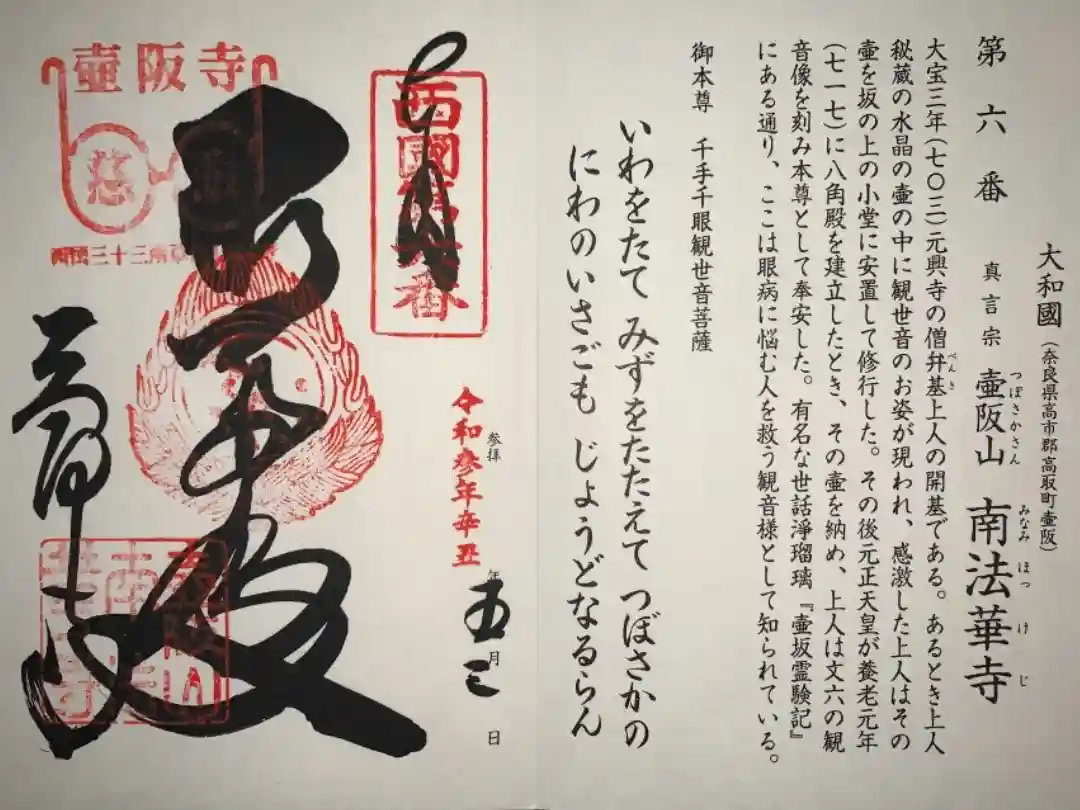 大和國(奈良県高市郡高取町壷阪)
第六番 真言宗 壷阪山 南法華寺
つぼさかさん みなみほっけじ
大宝三年(七〇三)元興寺の僧弁基上人の開基である。あるとき上人
べんき
秘蔵の水晶の壷の中に観世音のお姿が現われ、感激した上人はその
壷を坂の上の小堂に安置して修行した。その後元正天皇が養老元年
(七一七)に八角殿を建立したとき、その壷を納め、上人は文六の観
音像を刻み本尊として奉安した。有名な世話淨瑠璃『壷坂霊験記』
にある通り、ここは眼病に悩む人を救う観音様として知られている。
御本尊 千手千眼観世音菩薩
いわをたて みずをたたえて つぼさかの
にわのいさごも じょうどなるらん
参拝
令和参年辛丑
年五月三日
西國第六番
壷阪寺
慈
西国三十三所